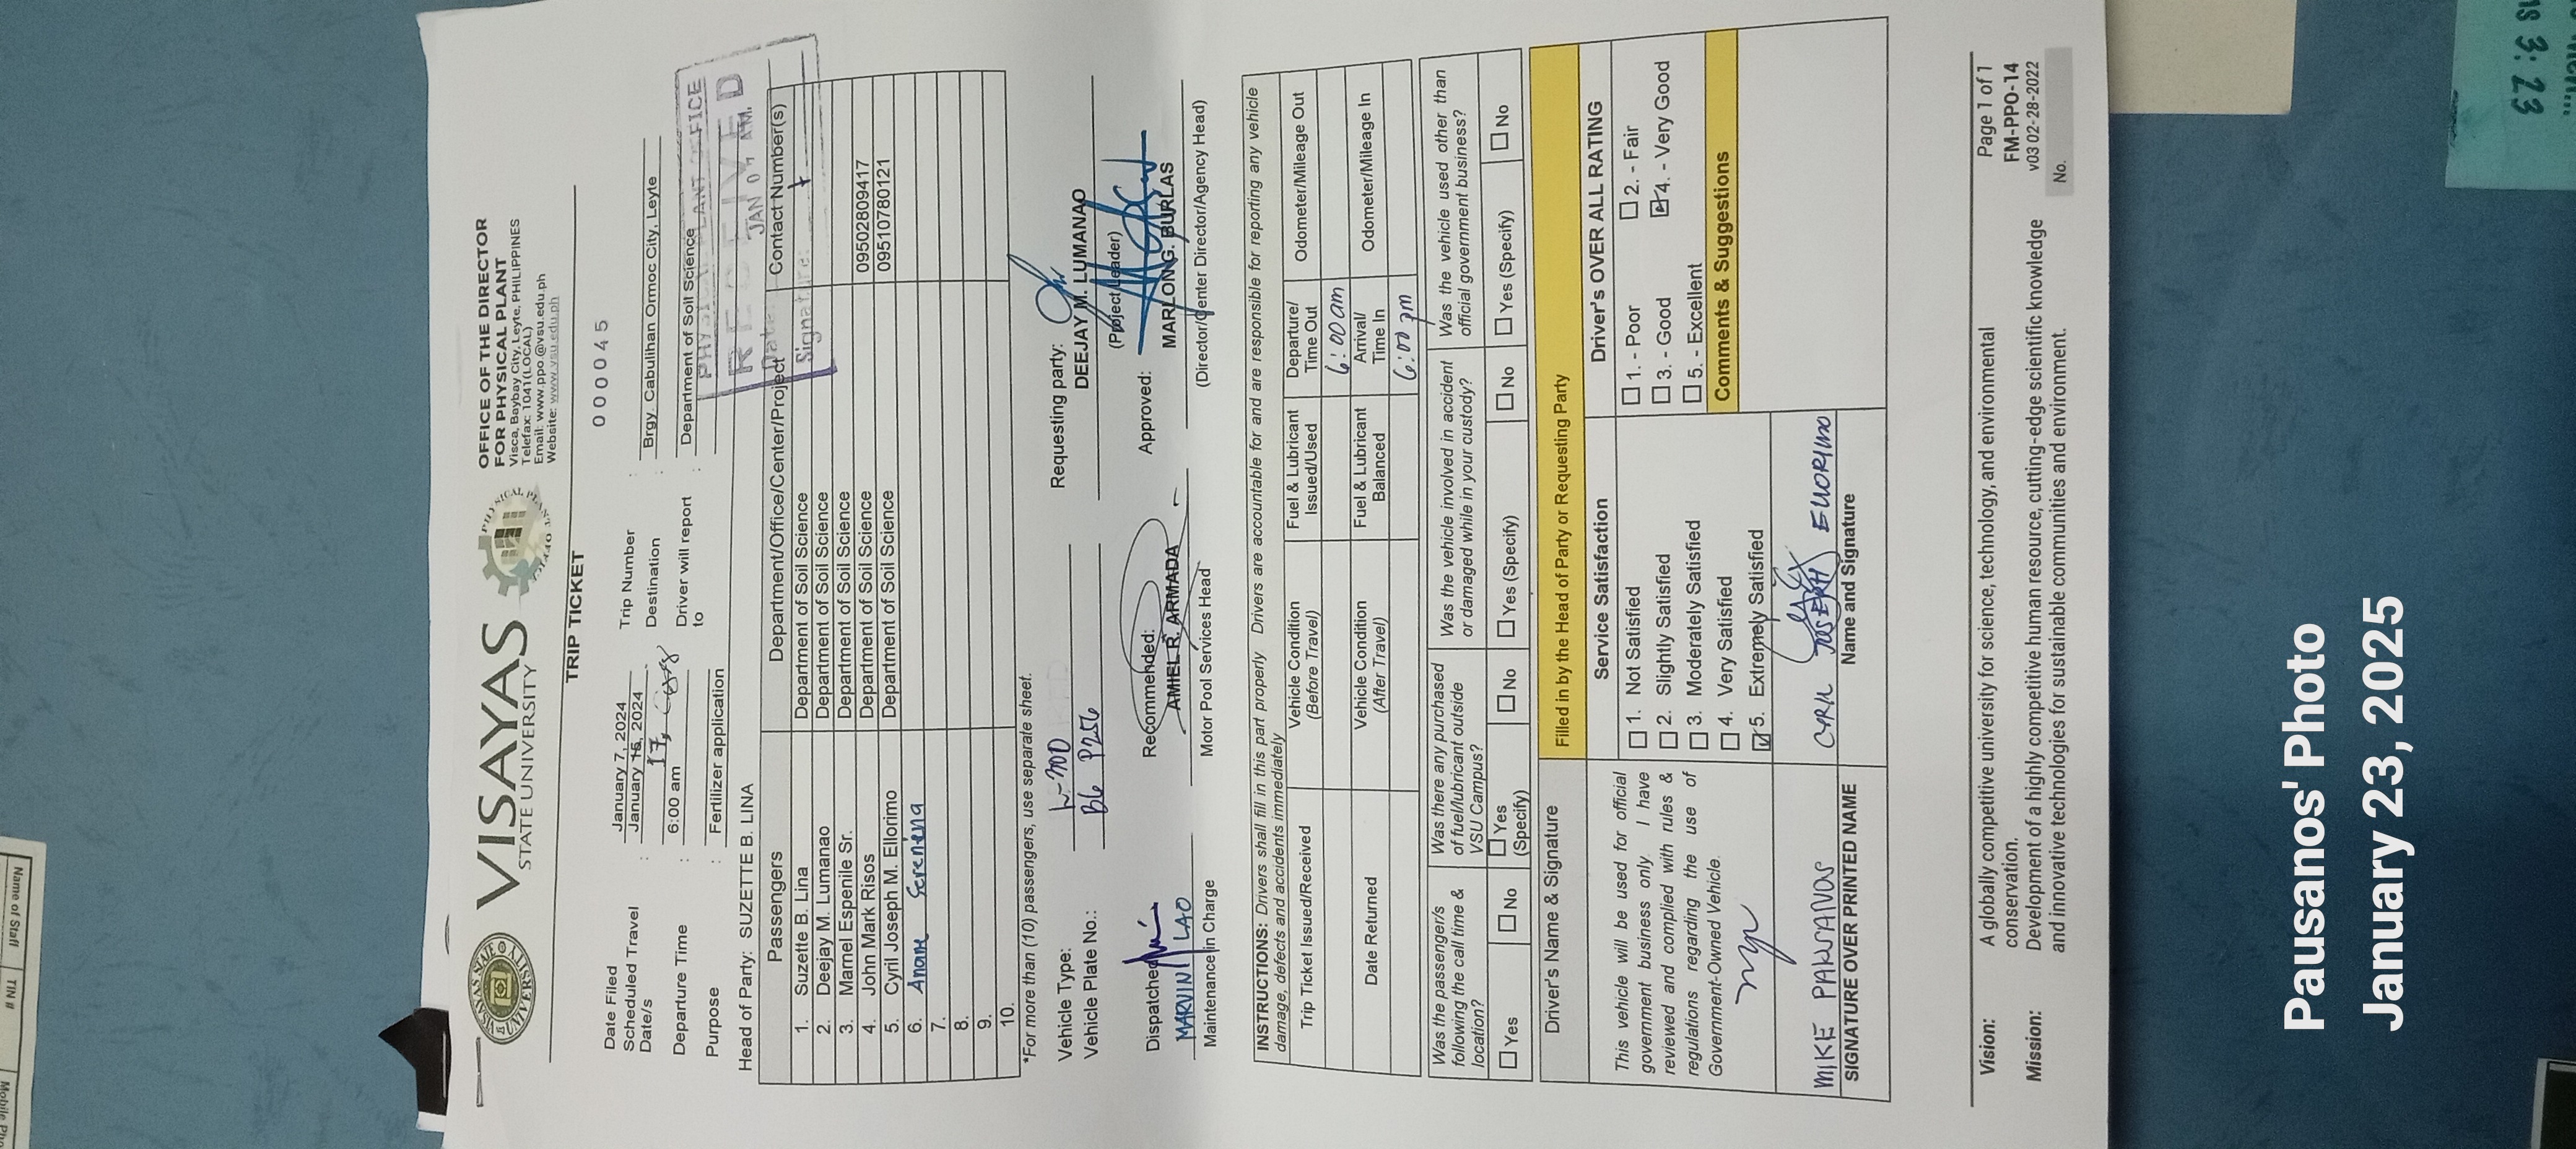 VISAYAS
STATE UNIVERSITY
OFFICE OF THE DIRECTOR
FOR PHYSICAL PLANT
Visca, Baybay City, Leyte, PHILIPPINES
Telefax: 1041(LOCAL)
Email: www.ppo.@vsu.edu.ph
Website: www.vsu.edu.ph
TRIP TICKET
000045
Date Filed : January 7, 2024 Trip Number :
Scheduled Travel Date/s : January 16, 2024 17, Destination : Brgy. Cabulihan Ormoc City, Leyte
Departure Time : 6:00 am Driver will report to : Department of Soil Science
Purpose : Fertilizer application
PHYSICAL PLANT OFFICE
RECEIVED
Date: JAN 0
Signature:
Head of Party: SUZETTE B. LINA
Passengers Department/Office/Center/Project Contact Number(s)
1. Suzette B. Lina Department of Soil Science
2. Deejay M. Lumanao Department of Soil Science
3. Marnel Espenile Sr. Department of Soil Science
4. John Mark Risos Department of Soil Science 09502809417
5. Cyril Joseph M. Ellorimo Department of Soil Science 09510780121
6.
7.
8.
9.
10.
*For more than (10) passengers, use separate sheet.
Vehicle Type: L-300
Vehicle Plate No.: B6 P256
Requesting party:
DEEJAY M. LUMANAO
(Project Leader)
Dispatched
MARVIN LAO
Maintenance in Charge
Recommended:
AMIEL R. ARMADA
Motor Pool Services Head
Approved:
MARLON G. BURLAS
(Director/Center Director/Agency Head)
INSTRUCTIONS: Drivers shall fill in this part properly Drivers are accountable for and are responsible for reporting any vehicle
damage, defects and accidents immediately
Trip Ticket Issued/Received Vehicle Condition (Before Travel) Fuel & Lubricant Issued/Used Departure/ Time Out Odometer/Mileage Out
6:00 am
Date Returned Vehicle Condition (After Travel) Fuel & Lubricant Balanced Arrival/ Time In Odometer/Mileage In
6:00 pm
Was the passenger/s following the call time & location? Was there any purchased of fuel/lubricant outside VSU Campus? Was the vehicle involved in accident or damaged while in your custody? Was the vehicle used other than official government business?
Yes No Yes (Specify) No Yes (Specify) No Yes (Specify) No
Driver's Name & Signature
This vehicle will be used for official
government business only. I have
reviewed and complied with rules &
regulations regarding the use of
Government-Owned Vehicle.
MIKE PAWSANOS
SIGNATURE OVER PRINTED NAME
Filled in by the Head of Party or Requesting Party
Service Satisfaction
1. Not Satisfied
2. Slightly Satisfied
3. Moderately Satisfied
4. Very Satisfied
5. Extremely Satisfied
CYRIL JOSEPH ELLORIMO
Name and Signature
Driver's OVER ALL RATING
1. - Poor 2. - Fair
3. - Good 4. - Very Good
5. - Excellent
Comments & Suggestions
Vision: A globally competitive university for science, technology, and environmental
conservation.
Mission: Development of a highly competitive human resource, cutting-edge scientific knowledge
and innovative technologies for sustainable communities and environment.
Page 1 of 1
FM-PPO-14
v03 02-28-2022
No.
Name of Staff TIN #
3:23
Pausanos' Photo
January 23, 2025